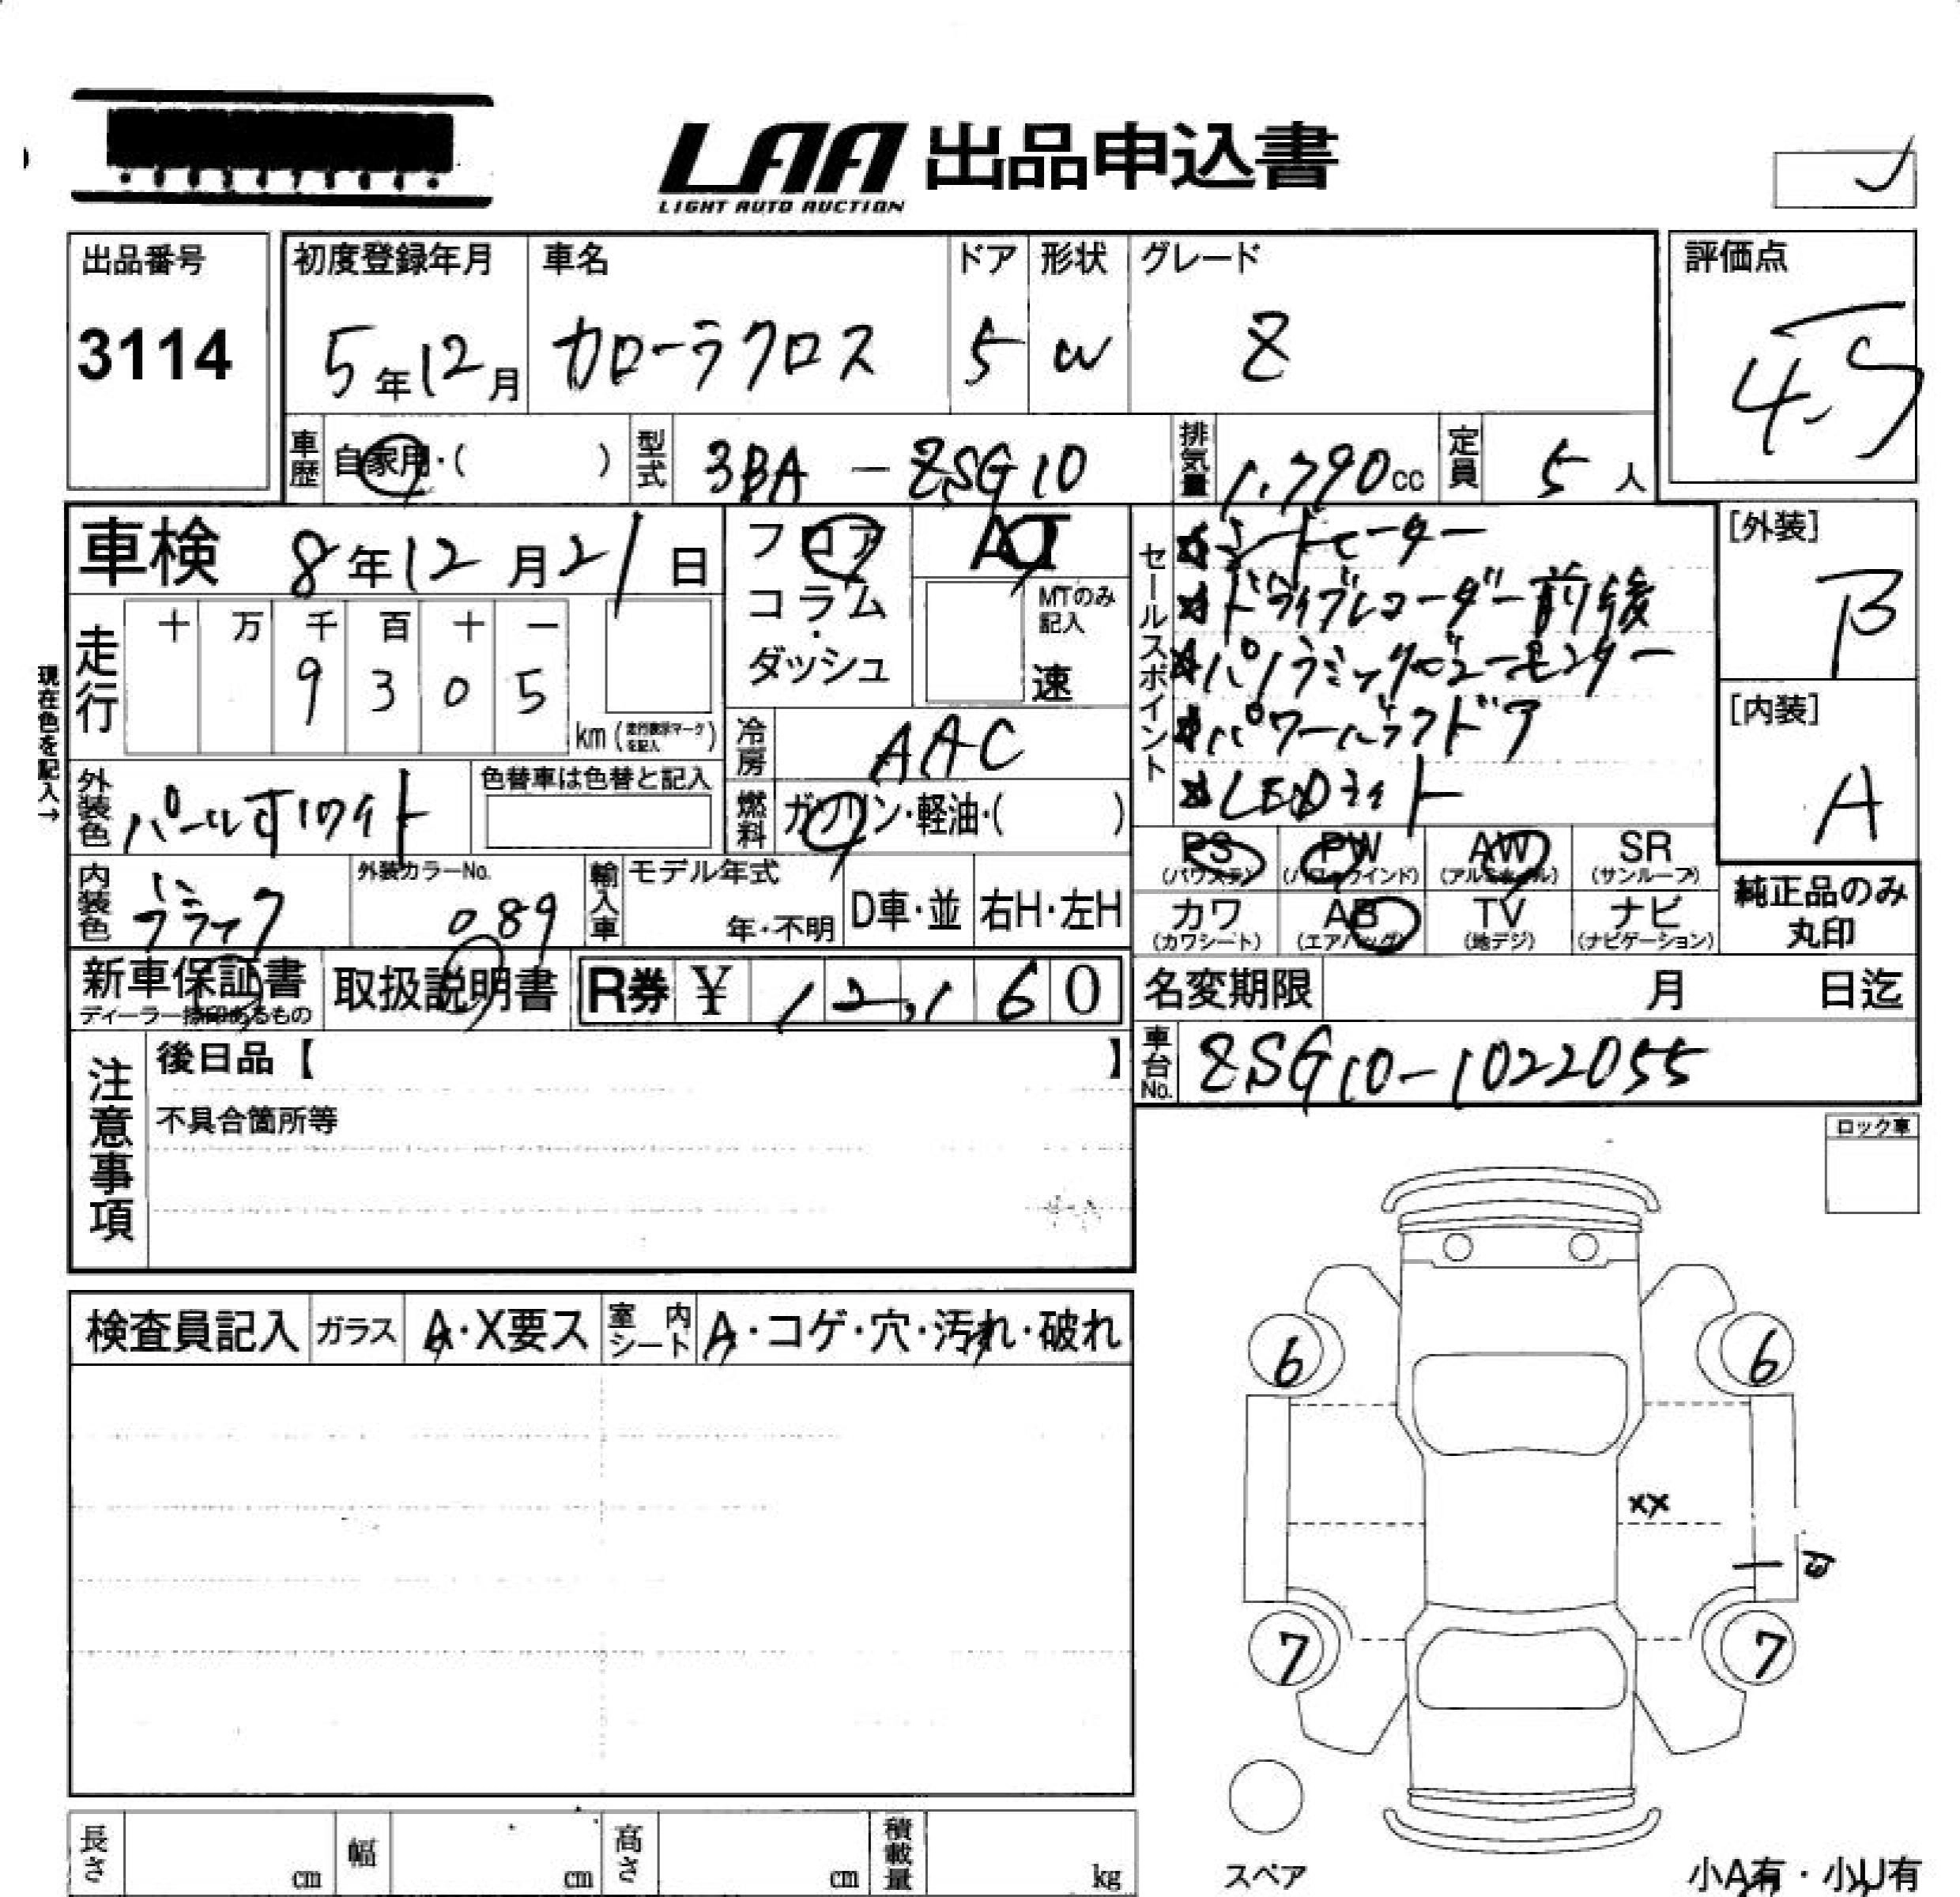 LAA 出品申込書
LIGHT AUTO AUCTION
出品番号 初度登録年月 車名 ドア 形状 グレード 評価点
3114 5年12月 カローラクロス 5 W Z 4.5
車歴 自家用・( ) 型式 3BA-ZSG10 排気量 1,790cc 定員 5人
車検 8年12月21日 フロア AT
コラム・ダッシュ MTのみ記入 速
セールスポイント
シートヒーター
ドライブレコーダー前後
パノラミックビューモニター
パワーバックドア
LEDライト
[外装] B
[内装] A
現在色を記入→
走行 十 万 千 百 十 一
9 3 0 5 km
冷房 AAC
外装色 パールホワイト 色替車は色替と記入
燃料 ガソリン・軽油・( )
PS (パワステ) PW (パワーウインド) AW (アルミホイル) SR (サンルーフ)
カワ (カワシート) AB (エアバッグ) TV (地デジ) ナビ (ナビゲーション)
純正品のみ丸印
内装色 ブラック 外装カラーNo. 089 輸入車 モデル年式 年・不明 D車・並 右H・左H
新車保証書 取扱説明書 R券 ¥ 12,160 名変期限 月 日迄
ディーラー捺印あるもの
車台No. ZSG10-1022055
注意事項
後日品【 】
不具合箇所等
ロック車
検査員記入 ガラス A・X要ス 室内シート A・コゲ・穴・汚れ・破れ
6 6
XX
7 7
スペア
長さ cm 幅 cm 高さ cm 積載量 kg
小A有・小U有